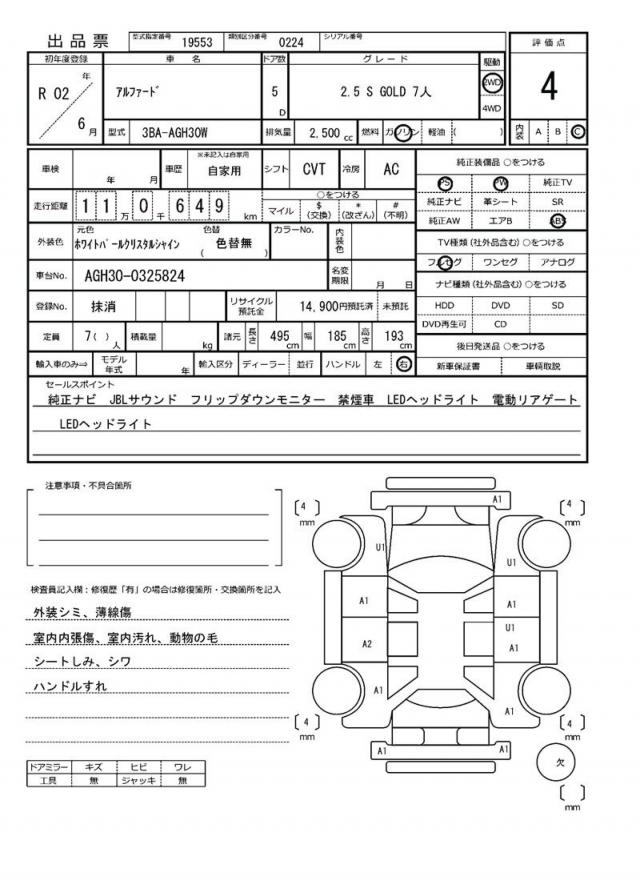 出品票
型式指定番号 19553 類別区分番号 0224 シリアル番号
初年度登録 車名 ドア数 グレード 駆動
評価点
R 02 年 6 月
アルファード
5 D
2.5 S GOLD 7人
2WD
4WD
4
型式 3BA-AGH30W 排気量 2,500 cc 燃料 ガソリン 軽油 ( )
内装 A B C
車検 年 月 車歴 ※未記入は自家用 自家用 シフト CVT 冷房 AC
走行距離 1 1 万 0 千 6 4 9 km
○をつける
マイル $(交換) *(改ざん) #(不明)
外装色 元色 ホワイトパールクリスタルシャイン 色替 ( 色替無 ) カラーNo. 内装色
車台No. AGH30-0325824 名変期限 月 日
登録No. 抹消 リサイクル預託金 14,900円預託済 未預託
定員 7( ) 人 積載量 kg 諸元 長さ 495 cm 幅 185 cm 高さ 193 cm
輸入車のみ⇒ モデル年式 年 輸入区分 ディーラー 並行 ハンドル 左 右
純正装備品 ○をつける
PS PW 純正TV
純正ナビ 革シート SR
純正AW エアB ABS
TV種類(社外品含む)○をつける
フルセグ ワンセグ アナログ
ナビ種類(社外品含む)○をつける
HDD DVD SD
DVD再生可 CD
後日発送品 ○をつける
新車保証書 車輌取説
セールスポイント
純正ナビ JBLサウンド フリップダウンモニター 禁煙車 LEDヘッドライト 電動リアゲート
LEDヘッドライト
注意事項・不具合箇所
検査員記入欄:修復歴「有」の場合は修復箇所・交換箇所を記入
外装シミ、薄線傷
室内内張傷、室内汚れ、動物の毛
シートしみ、シワ
ハンドルすれ
ドアミラー キズ ヒビ ワレ
工具 無 ジャッキ 無
A1
4 mm
4 mm
U1
U1
A1
A1
U1
A2
A1
A1
A1
4 mm
4 mm
A1
A1
欠
mm